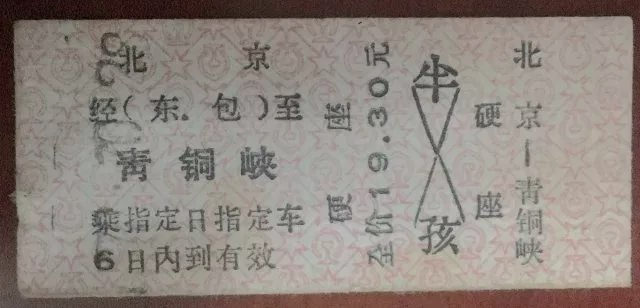 北京
经(东.包)至
青铜峡
乘指定日指定车
6日内到有效
硬座
全价19.30元
半孩
硬座
北京—青铜峡